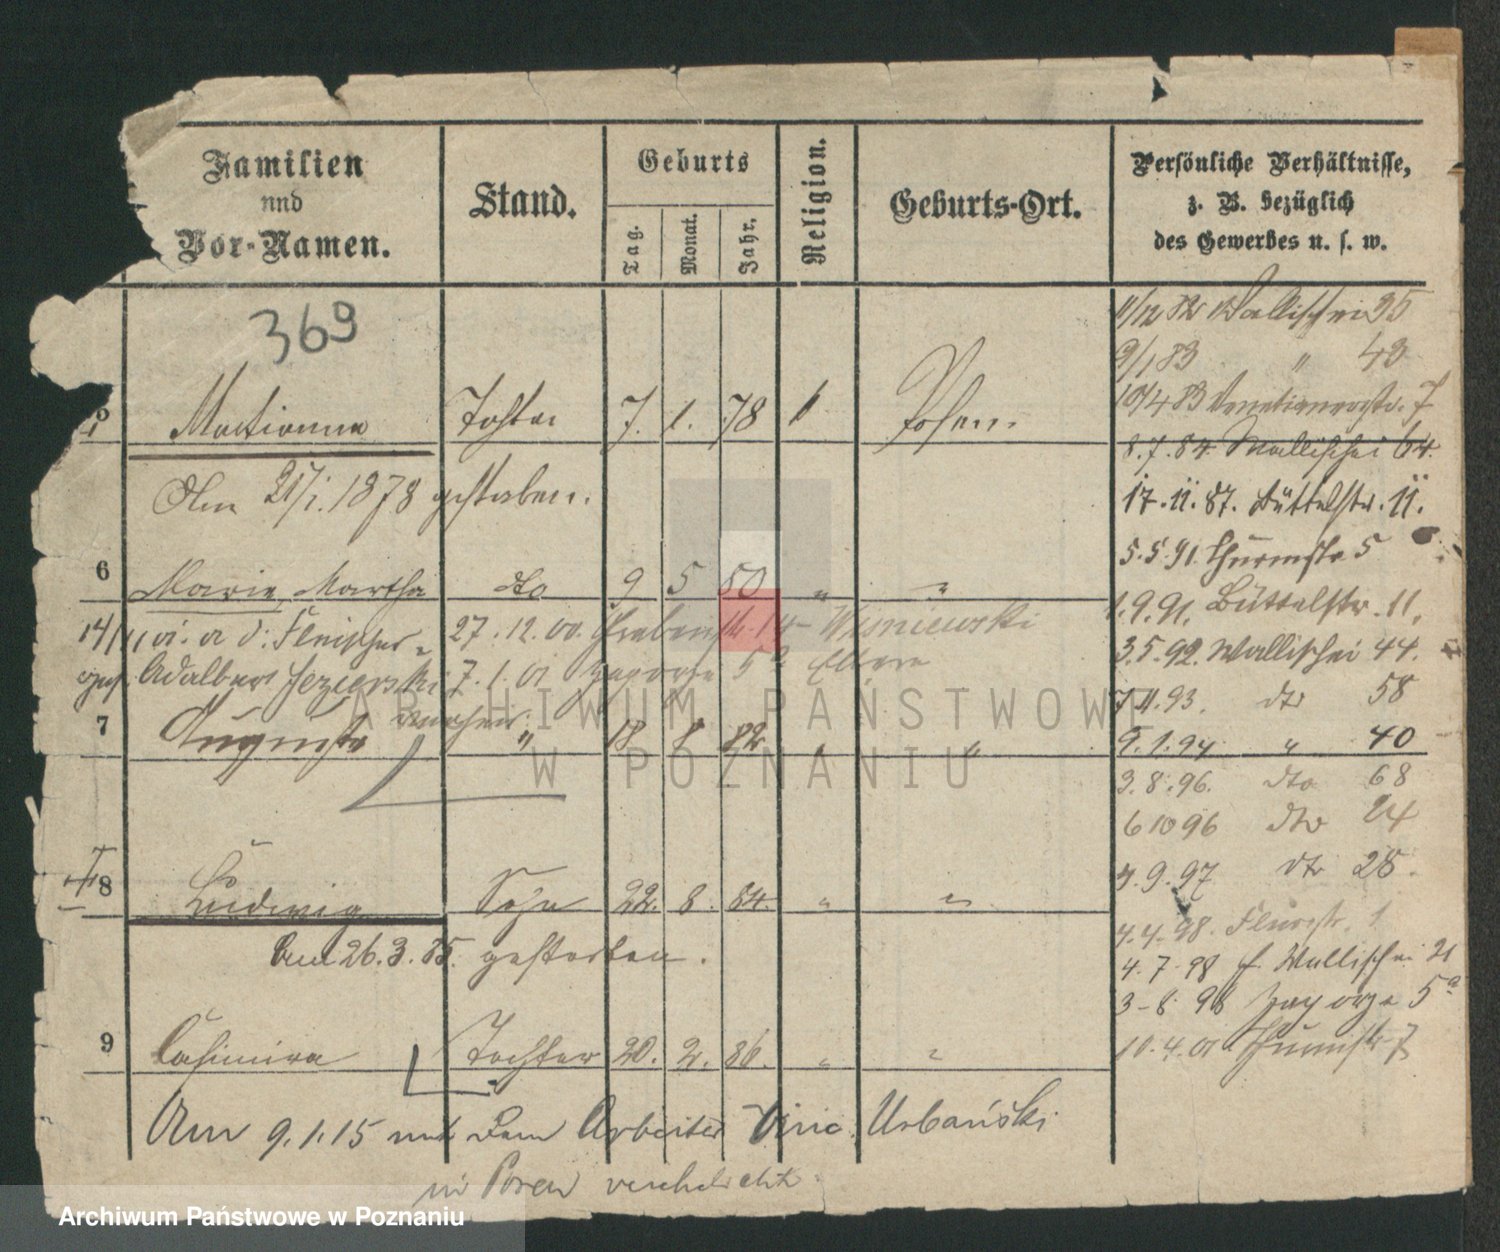 Familien
und
Vor-Namen.
Stand.
Geburts
Tag.
Monat.
Jahr.
Religion.
Geburts-Ort.
Persönliche Verhältnisse,
z. B. bezüglich
des Gewerbes u. s. w.
369
11/12 82 Wallischei 35
9/1 83 " 43
10/4 83 Venetianerstr. 7
Marianna Tochter 7. 1. 78 Posen.
8.7.84. Wallischei 64.
Am 21/1. 1878 gestorben.
17.11.87. Büttelstr. 11.
5.5.91. Thurmstr 5
6 Marie, Martha dto 9 5 80 " "
1.9.91. Büttelstr. 11.
14/11 01. a d. Fleischer 27.12.00. Grabenstr. 14 Wisniewski
3.5.92. Wallischei 44.
Adalbert Jezierski 7.1.01 Zagorze 5a Eltern
7.11.93. dto 58
7 Auguste " 18 8 82 " "
9.1.94 " 40
3.8.96. dto 68
6 10 96 dto 24
4.9.97 dto 28.
8 Ludwig Sohn 22. 8. 84. " "
4.4.98. Flurstr. 1
Am 26.3.85. gestorben.
4.7.98 Wallischei 21
3-8 98 Zagorze 5a
9 Casimira Tochter 20. 2. 86. " "
10.4.01 Thurmstr 7
Am 9.1.15 mit dem Arbeiter Vinc. Urbański
in Posen verehelicht.
ARCHIWUM PAŃSTWOWE
W POZNANIU
Archiwum Państwowe w Poznaniu